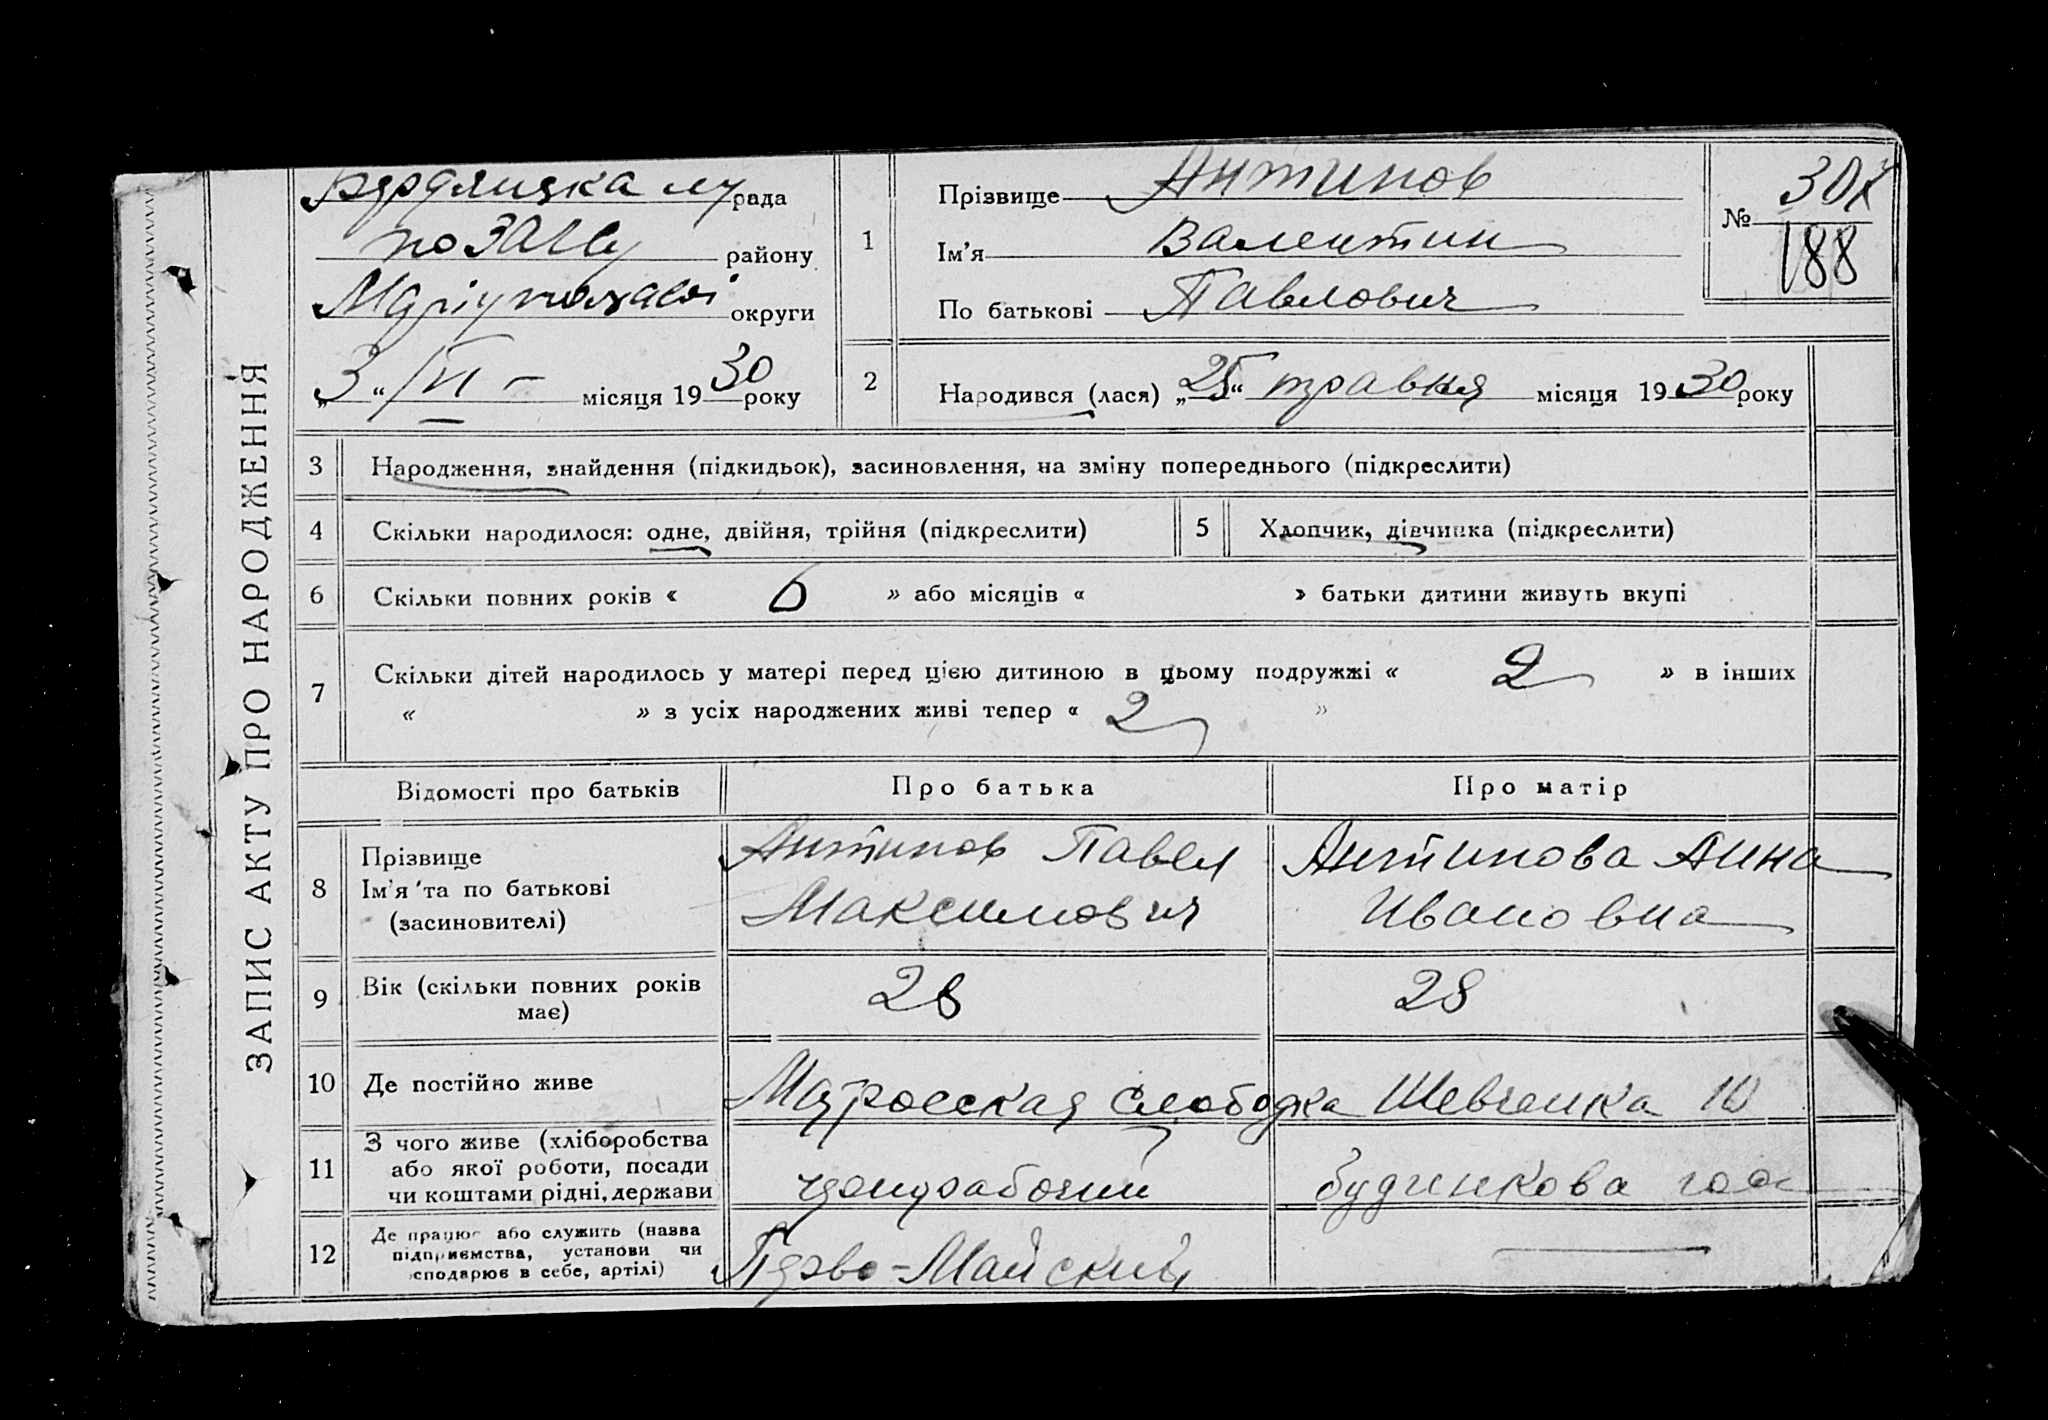 ЗАПИС АКТУ ПРО НАРОДЖЕННЯ
Бердянська рада
по ЗАГСу району
Маріупольської округи
„3“ /VI – місяця 1930 року
1
Прізвище Антипов
Ім'я Валентин
По батькові Павлович
№ 307
188
2
Народився (лася) „25“ травня місяця 1930 року
3 Народження, знайдення (підкидьок), засиновлення, на зміну попереднього (підкреслити)
4 Скільки народилося: одне, двійня, трійня (підкреслити)
5 Хлопчик, дівчинка (підкреслити)
6 Скільки повних років « 6 » або місяців « » батьки дитини живуть вкупі
7 Скільки дітей народилось у матері перед цією дитиною в цьому подружжі « 2 » в інших
« » з усіх народжених живі тепер « 2 »
Відомості про батьків Про батька Про матір
8 Прізвище
Ім'я та по батькові
(засиновителі)
Антипов Павел
Максимович
Антипова Анна
Ивановна
9 Вік (скільки повних років
має)
28 28
10 Де постійно живе Матросская Слободка Шевченка 10
11 З чого живе (хліборобства
або якої роботи, посади
чи коштами рідні, держави
чернорабочий будинкова гос
12 Де працює або служить (назва
підприємства, установи чи
сподарює в себе, артілі)
Перво-Майский